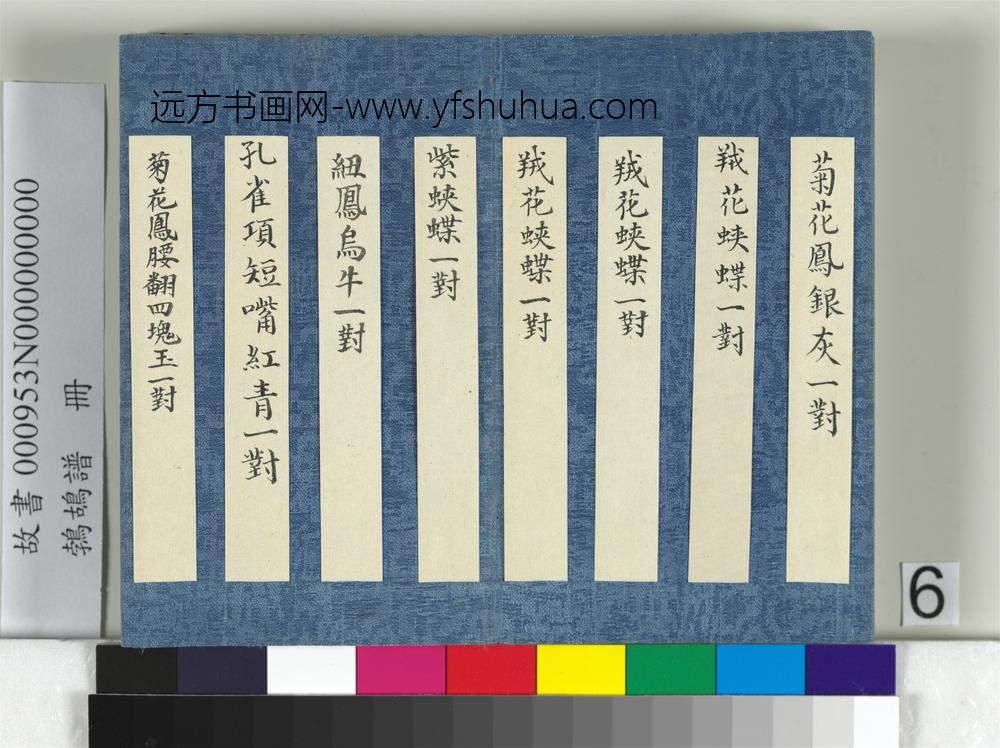 远方书画网-www.yfshuhua.com
菊花鳳銀灰一對
羢花蛺蝶一對
羢花蛺蝶一對
羢花蛺蝶一對
紫蛺蝶一對
紐鳳烏牛一對
孔雀項短嘴紅青一對
菊花鳳腰翻四塊玉一對
故書 000953N000000000
鵓鴣譜 冊
6